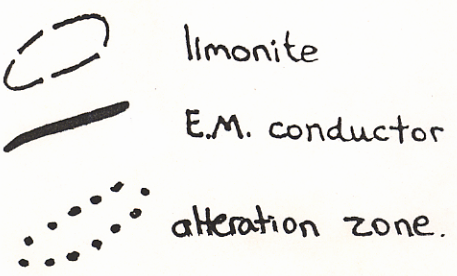 limonite
E.M. conductor
alteration zone.